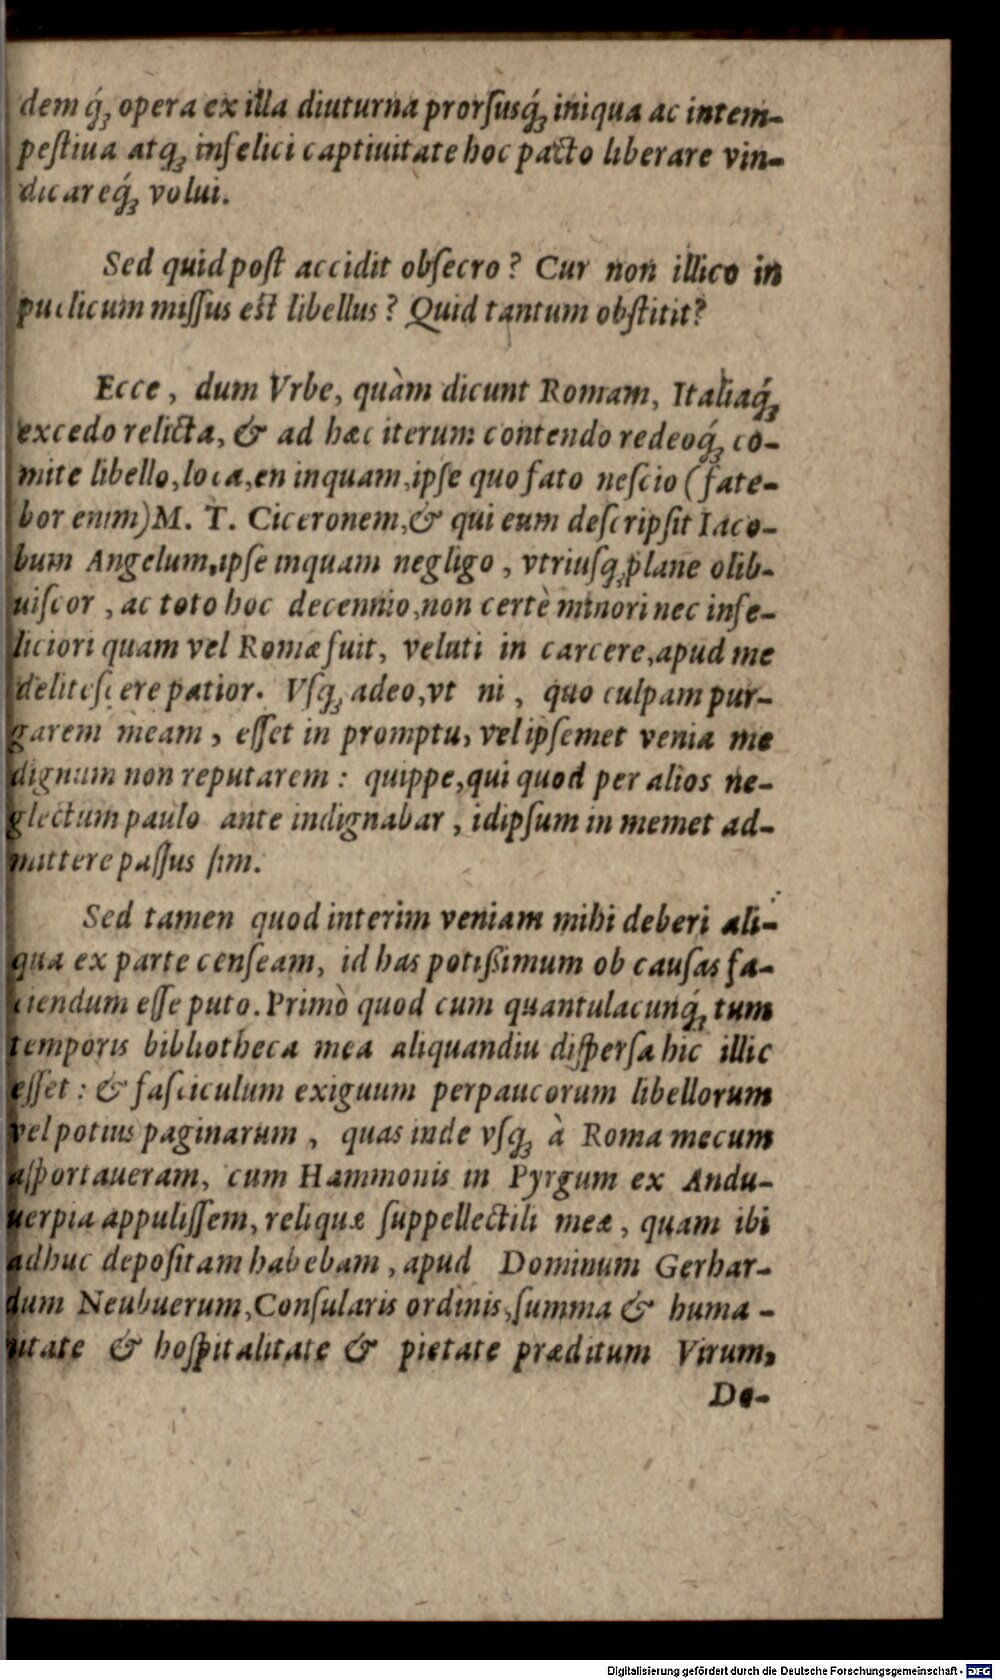 dem q́ꝫ opera ex illa diuturna prorſusq́ꝫ iniqua ac intem-
peſtiua atqꝫ infelici captiuitate hoc pacto liberare vin-
dicareq́ꝫ volui.
Sed quid poſt accidit obſecro? Cur non illico in
puclicum miſſus eſt libellus? Quid tantum obſtitit?
Ecce, dum Vrbe, quàm dicunt Romam, Italiaq́ꝫ
excedo relicta, & ad hæc iterum contendo redeoq́ꝫ co-
mite libello, loca, en inquam, ipſe quo fato neſcio (fate-
bor enim) M. T. Ciceronem, & qui eum deſcripſit Iaco-
bum Angelum, ipſe inquam negligo, vtriuſqꝫ plane olib-
uiſcor, ac toto hoc decennio, non certè minori nec infe-
liciori quam vel Romæ fuit, veluti in carcere, apud me
deliteſcere patior. Vſqꝫ adeo, vt ni, quo culpam pur-
garem meam, eſſet in promptu, vel ipſemet venia me
dignum non reputarem: quippe, qui quod per alios ne-
glectum paulo ante indignabar, idipſum in memet ad-
mittere paſſus ſim.
Sed tamen quod interim veniam mihi deberi ali-
qua ex parte cenſeam, id has potiſsimum ob cauſas fa-
ciendum eſſe puto. Primò quod cum quantulacunq́ꝫ tum
temporis bibliotheca mea aliquandiu diſperſa hic illic
eſſet: & faſciculum exiguum perpaucorum libellorum
vel potius paginarum, quas inde vſqꝫ à Roma mecum
aſportaueram, cum Hammonis in Pyrgum ex Andu-
uerpia appuliſſem, reliquæ ſuppellectili meæ, quam ibi
adhuc depoſitam habebam, apud Dominum Gerhar-
dum Neubuerum, Conſularis ordinis, ſumma & huma-
nitate & hoſpitalitate & pietate præditum Virum,
De-
Digitalisierung gefördert durch die Deutsche Forschungsgemeinschaft - DFG